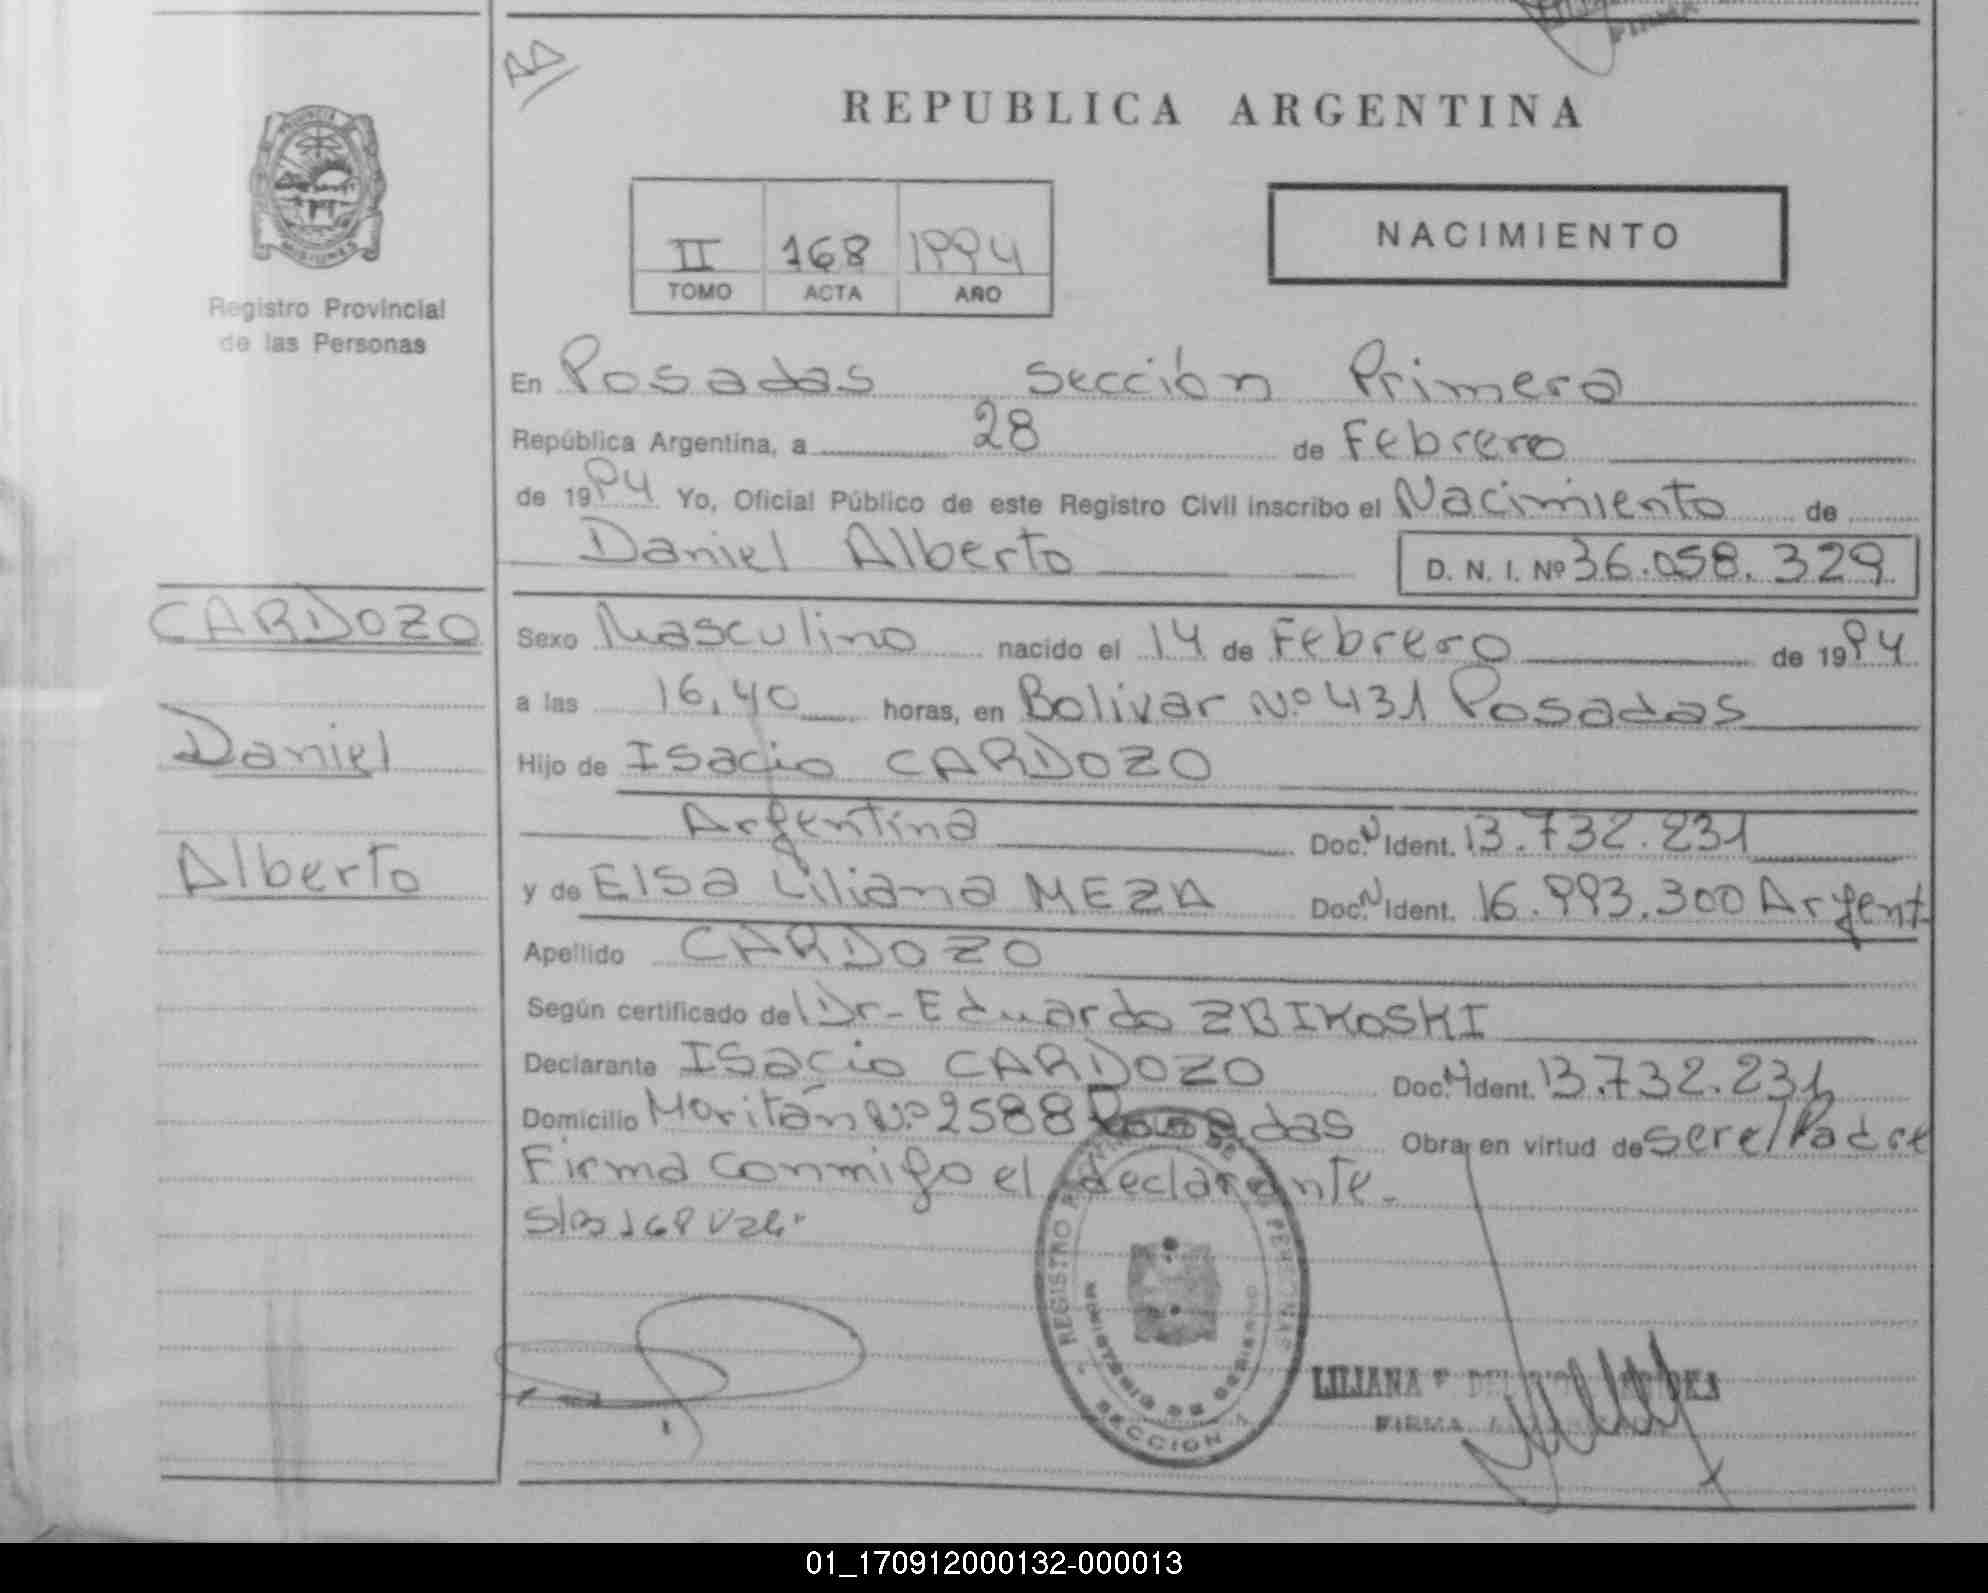 REPUBLICA ARGENTINA
II 168 1994
TOMO ACTA AÑO
NACIMIENTO
Registro Provincial
de las Personas
En Posadas Sección Primera
República Argentina, a 28 de Febrero
de 1994 Yo, Oficial Público de este Registro Civil inscribo el Nacimiento de
Daniel Alberto D. N. I. Nº 36.058.329
CARDOZO
Daniel
Alberto
Sexo Masculino nacido el 14 de Febrero de 1994
a las 16,40 horas, en Bolivar Nº 431 Posadas
Hijo de Isacio CARDOZO
Argentina Doc. N Ident. 13.732.231
y de Elsa Liliana MEZA Doc. N Ident. 16.993.300 Argent.
Apellido CARDOZO
Según certificado de Dr. Eduardo ZBIKOSKI
Declarante Isacio CARDOZO Doc. N Ident. 13.732.231
Domicilio Moritán Nº 2588 Posadas Obra en virtud de ser el Padre
Firma conmigo el declarante.
REGISTRO DE LAS PERSONAS
MINISTERIO DE GOBIERNO
SECCION 1
LILIANA
FIRMA
01_170912000132-000013